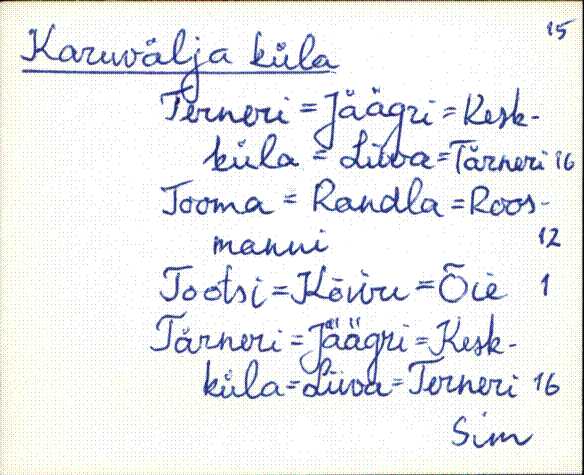 15
Karuvälja küla
Terneri = Jäägri = Kesk-
küla = Liiva = Tärneri 16
Tooma = Randla = Roos-
manni 12
Tootsi = Kõivu = Õie 1
Tärneri = Jäägri = Kesk-
küla = Liiva = Terneri 16
Sim